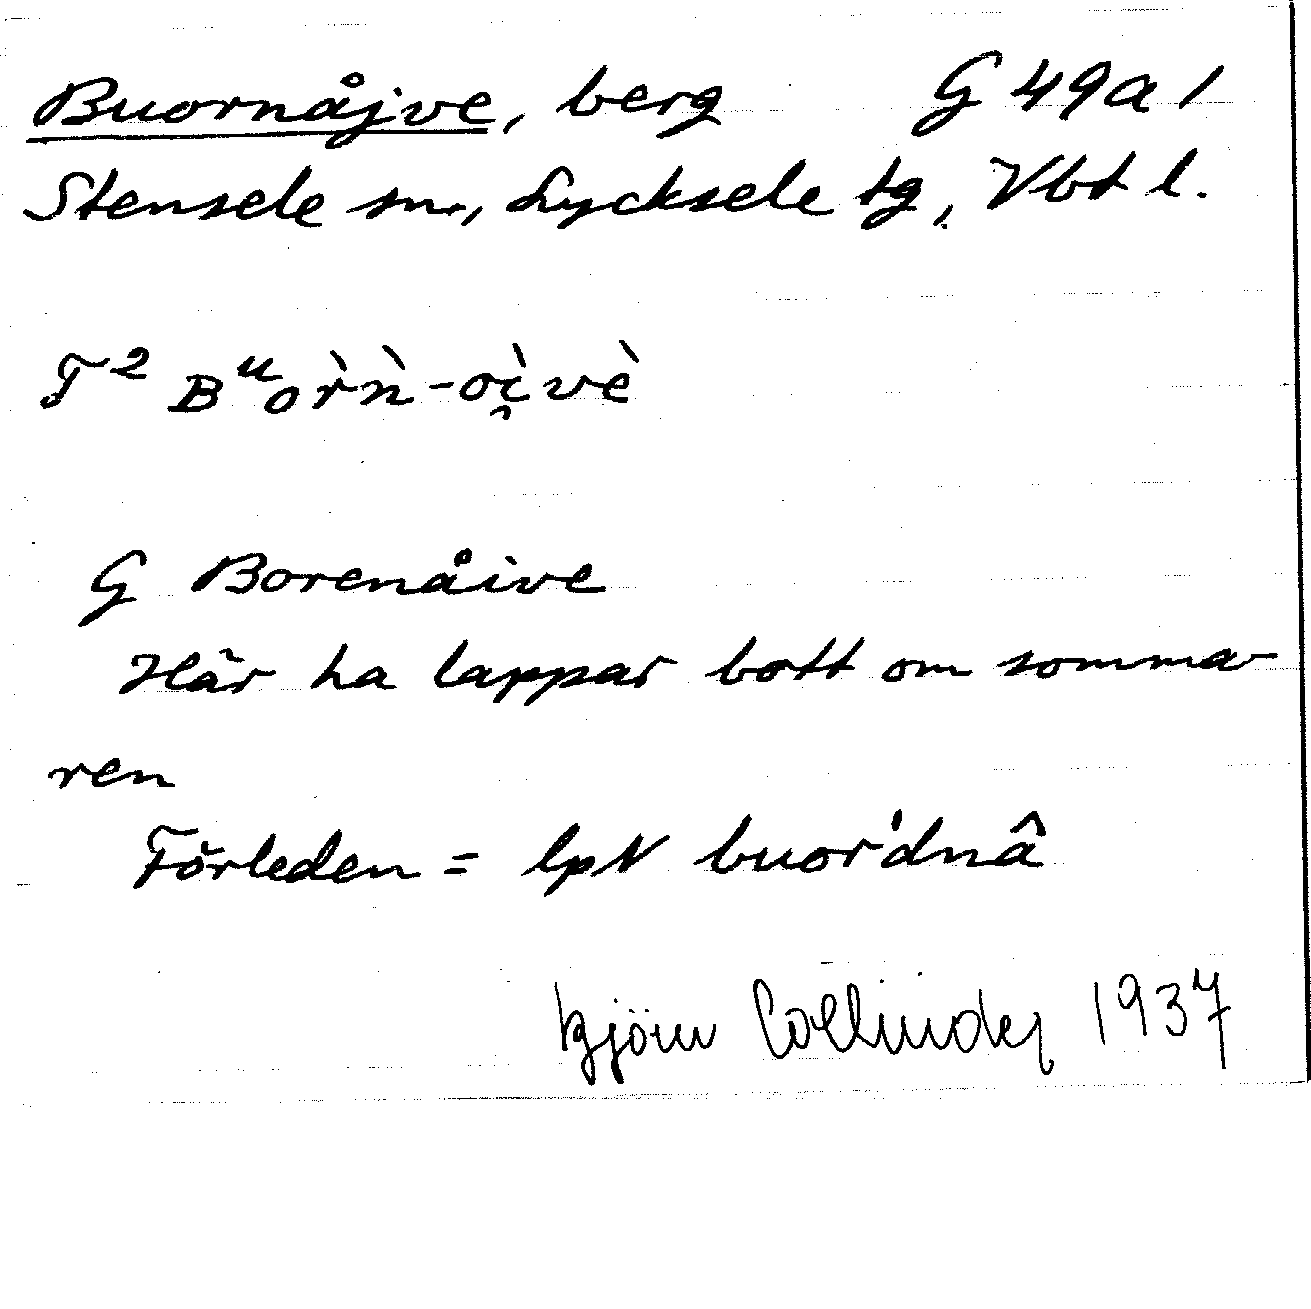 Buornåjve, berg G 49 a 1
Stensele sn., Lycksele tg, Vbt l.
T² Bᵘor̀ǹ-oì̯vè
G Borenåive
Här ha lappar bott om somma-
ren
Förleden = lpN buor'dnâ
Björn Collinder 1937